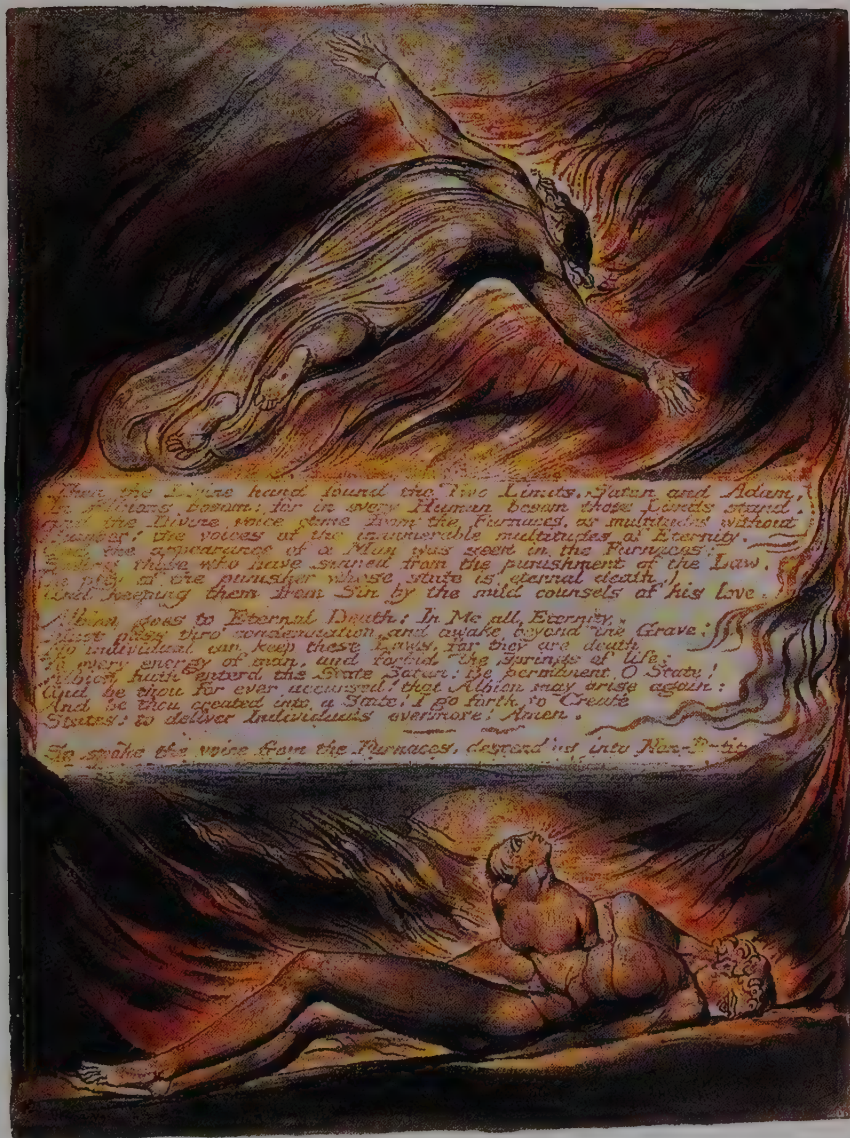 the Divine hand found the Two Limits, Satan and Adam,
bosom: for in every Human bosom those Limits stand.
the Divine voice came from the Furnaces, as multitudes without
the voices of the innumerable multitudes of Eternity.
the appearance of a Man was seen in the Furnaces;
those who have sinned from the punishment of the Law,
In pity of the punisher whose state is eternal death,
And keeping them from Sin by the mild counsels of his love.
Albion goes to Eternal Death: In Me all Eternity,
Must pass thro' condemnation, and awake beyond the Grave;
No individual can keep these Laws, for they are death
To every energy of man, and forbid the springs of life;
Albion hath enterd the State Satan! Be permanent O State!
And be thou for ever accursed! that Albion may arise again:
And be thou created into a State! I go forth to Create
States: to deliver Individuals evermore! Amen.
So spoke the voice from the Furnaces, descending into Non-Entity